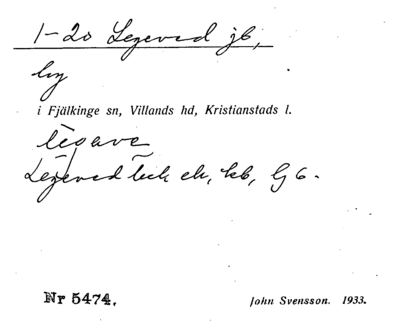 1-20 Legeved jb,
by
i Fjälkinge sn, Villands hd, Kristianstads l.
Legeved ek, kb,
Nr 5474.
John Svensson. 1933.